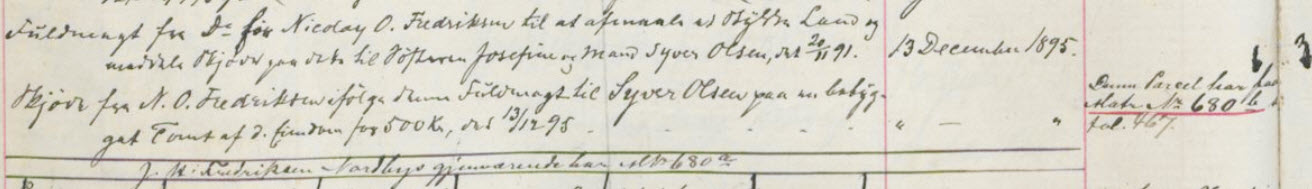 Fuldmagt fra Do for Nicolay O. Fredriksen til at afmaale et Stykke Land og
meddele Skjøde paa dette til Søsteren Josefine og Mand Syver Olsen, dat 20/11 91. 13 December 1895.
Skjøde fra N. O. Fredriksen ifølge denne Fuldmagt til Syver Olsen paa en bebyg-
get Tomt af d. Eiendom for 500 Kr, dat 13/12 95 - - - - - " — "
Denne Parcel har faaet
Matr. No 680 b
fol. 467.
J. H. Fredriksen Nordbys gjenværende har M No 680 a